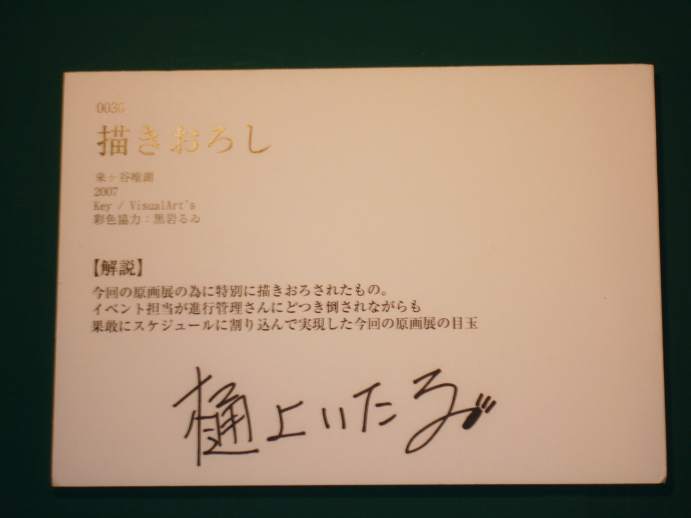 0036
描きおろし
来ヶ谷唯湖
2007
Key / VisualArt's
彩色協力：黒岩るゐ
【解説】
今回の原画展の為に特別に描きおろされたもの。
イベント担当が進行管理さんにどつき倒されながらも
果敢にスケジュールに割り込んで実現した今回の原画展の目玉
樋上いたる